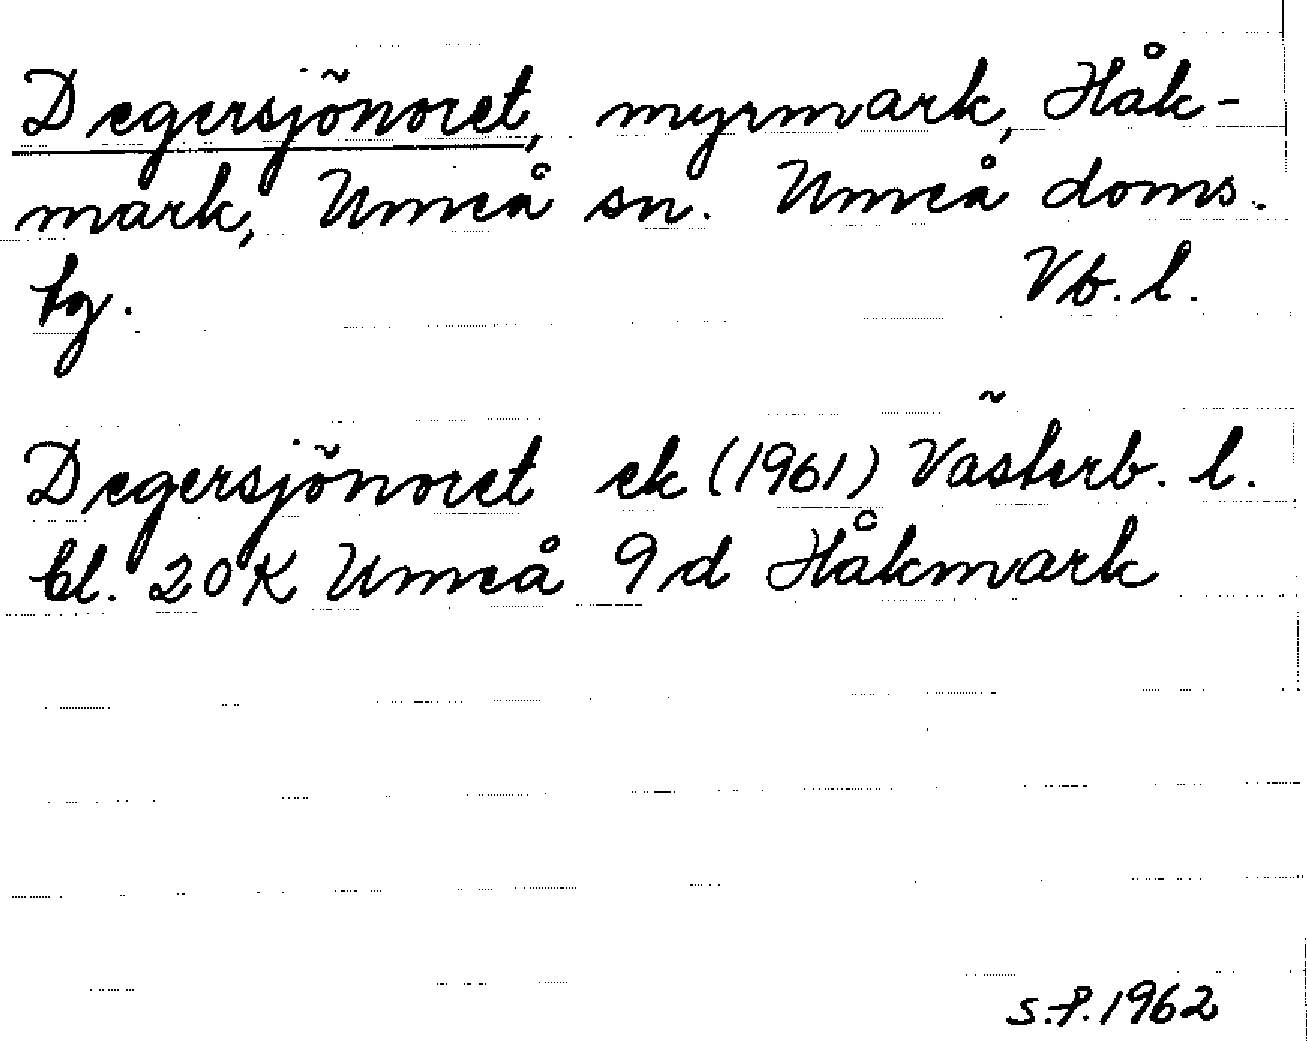 Degersjönoret, myrmark, Håk-
mark, Umeå sn. Umeå doms.
hg. Vb. l.
Degersjönoret ek (1961) Västerb. l.
bl. 20K Umeå 9d Håkmark
S.F. 1962